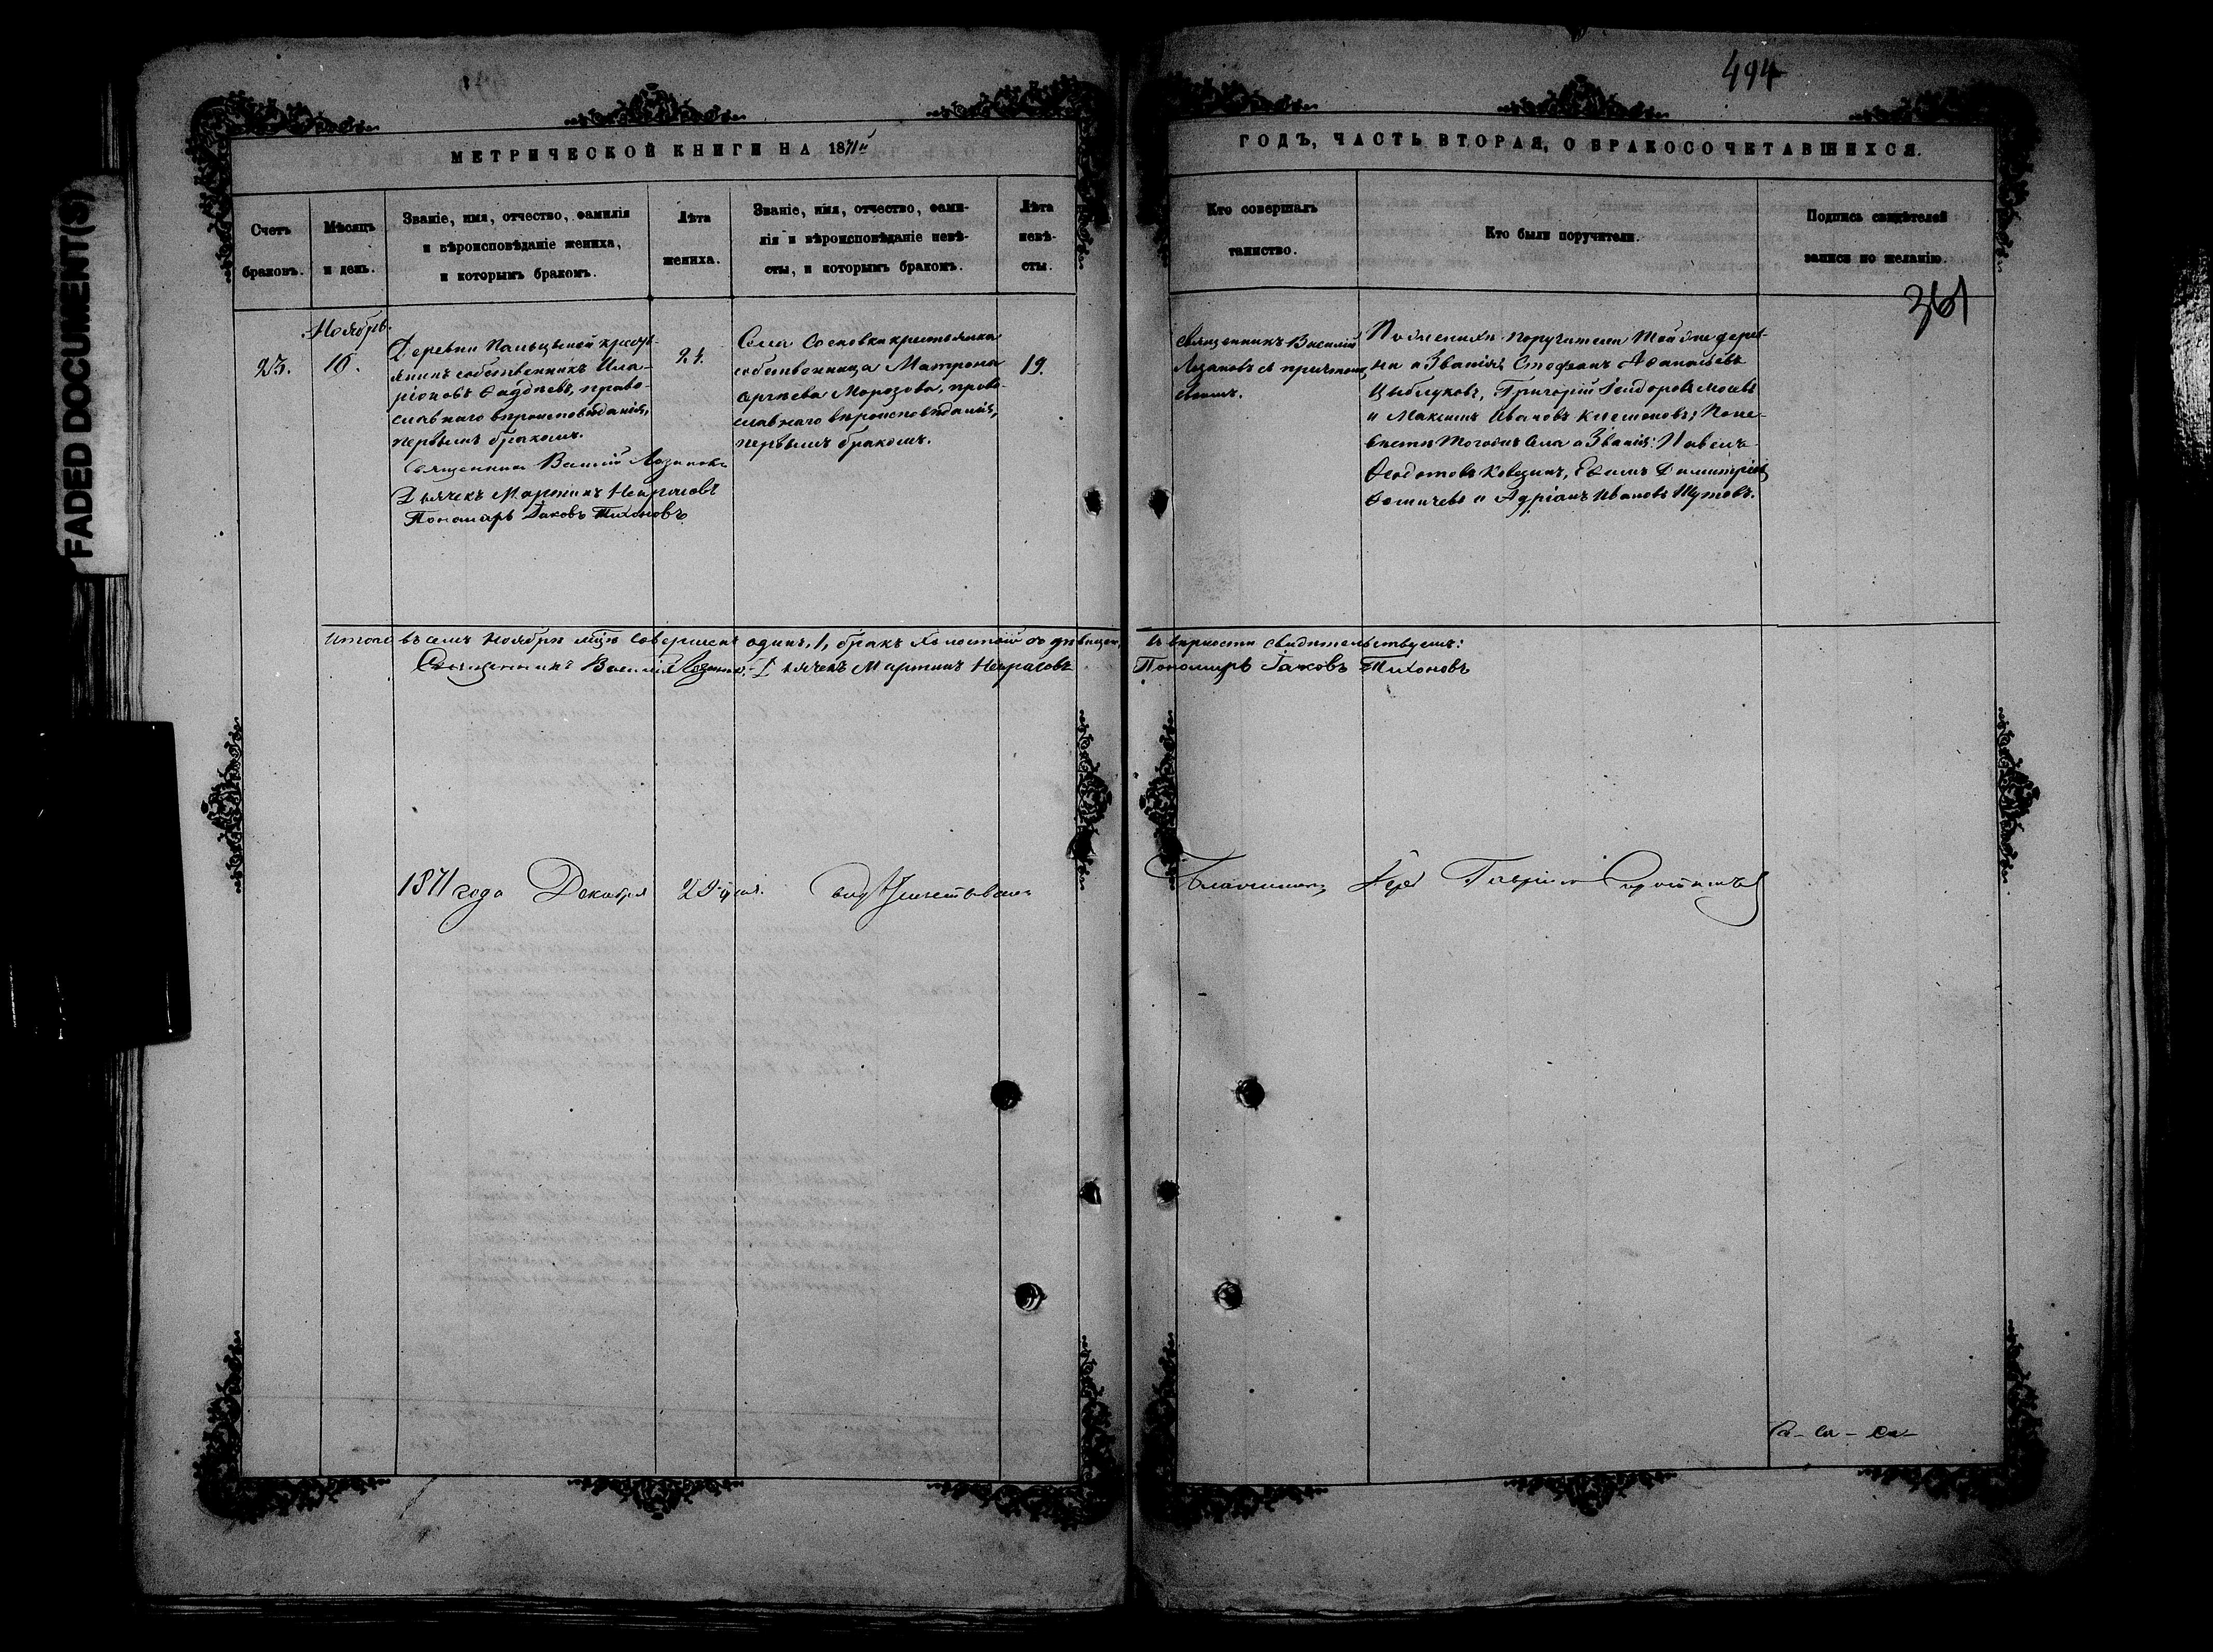 494
МЕТРИЧЕСКОЙ КНИГИ НА 1871й
ГОДЪ, ЧАСТЬ ВТОРАЯ, О БРАКОСОЧЕТАВШИХСЯ.
Счетъ
браковъ.
Мѣсяцъ
и день.
Званіе, имя, отчество, фамилія
и вѣроисповѣданіе жениха,
и которымъ бракомъ.
Лѣта
жениха.
Званіе, имя, отчество, фами-
лія и вѣроисповѣданіе невѣ-
сты, и которымъ бракомъ.
Лѣта
невѣ-
сты.
Кто совершалъ
таинство.
Кто были поручители.
Подпись свидѣтелей
записи по желанію.
361
23.
Ноябрь.
10.
Деревни крестъ-
янинъ собственникъ Ила-
ріоновъ Фаддѣевъ, право-
славнаго вѣроисповѣданія,
первымъ бракомъ.
Священникъ Василій Лозановъ
Дьячекъ Мартинъ Некрасовъ
Пономарь Іаковъ Тихоновъ
21.
Села Сосновки крестьянка
собственница Матрона
Сергѣева Морозова, право-
славнаго вѣроисповѣданія,
первымъ бракомъ.
19.
Священникъ Василій
Лозановъ съ причтомъ
своимъ.
По женихѣ поручители Той же дерев-
ни и Званія: Стефанъ Афанасьевъ
Цыблуковъ, Григорій Исидоровъ
и Максимъ Ивановъ; По не-
вѣстѣ того же Села и Званія: Павелъ
Федотовъ, Ефимъ Димитріевъ
Фомичевъ и Адріанъ Ивановъ Шутовъ.
Итого въ семъ Ноябрѣ мцѣ совершенъ одинъ, 1, бракъ холостой съ дѣвицею, въ вѣрности свидѣтельствуемъ:
Священникъ Василій Лозановъ. Дьячекъ Мартинъ Некрасовъ Пономарь Іаковъ Тихоновъ
1871 года Декабря 29 дня. Свидѣтельствовалъ Благочинный Іерей Гавріилъ